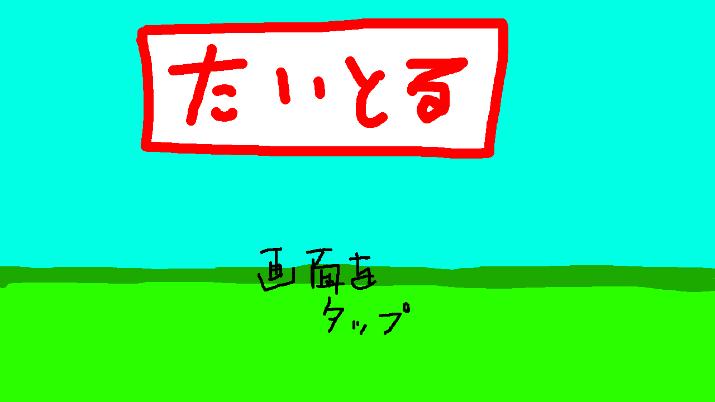 たいとる
画面を
タップ